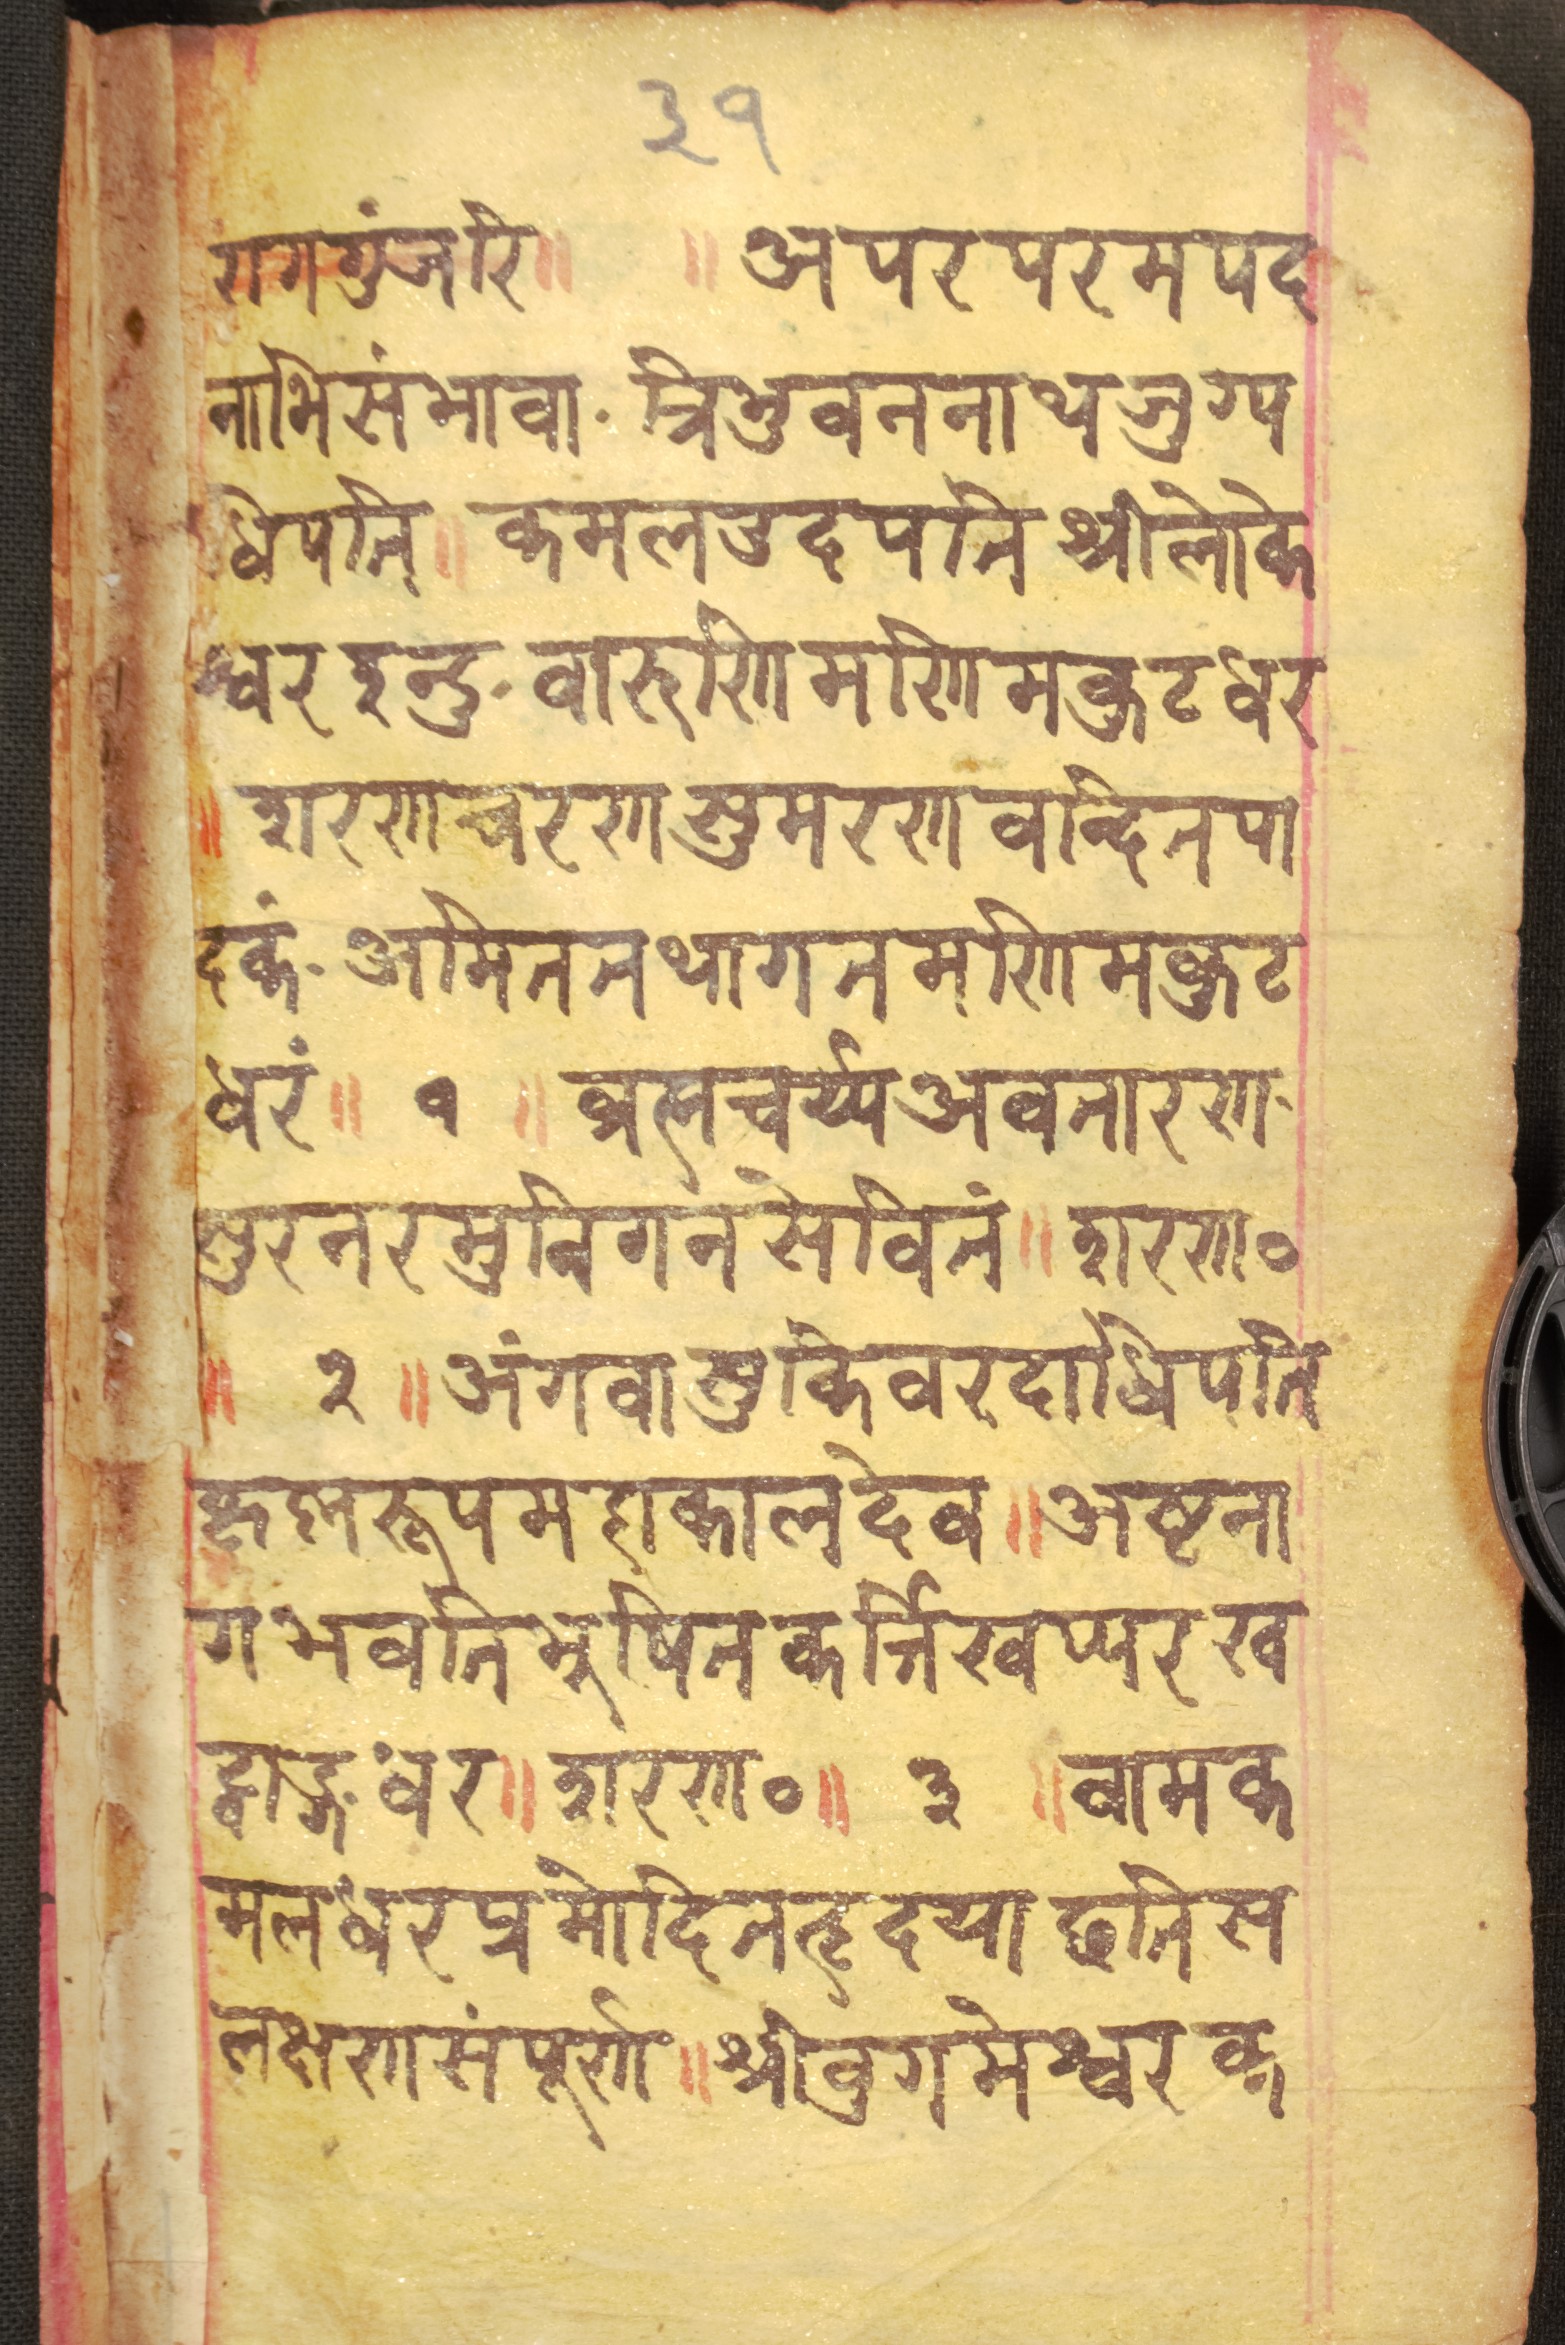 ३१
रागगुंजरि॥ ॥ अपरपरमपद
नाभिसंभावा. त्रिभुवननाथजुग्प
धिपति॥ कमलउदपति श्रीलोके
श्वर इन्दु. वारुणि मणि मकुट धर
॥ शरण चरण सुमरण वन्दित पा
दकं. अमित तथागत मणि मकुट
धरं॥ १ ॥ व्रह्मचर्य्य अवतारण.
सुरनरमुनिगनंसेवितं॥ शरण०
॥ २ ॥ अंगवासुकिवरदाधिपति
कृष्णरूपमहाकालदेव॥ अष्टना
गभवतिभूषितकर्त्तिखप्परख
ट्वाङ्ग.धर॥ शरण०॥ ३ ॥ वामक
मलधरप्रमोदितहृदयाछतिस
लक्षणसंपूर्ण॥ श्रीवुगमेश्वर क